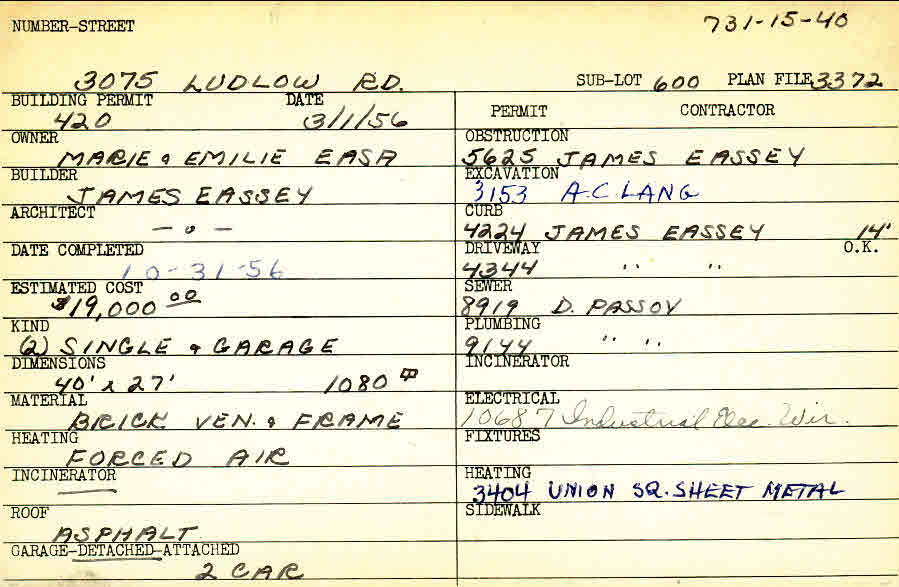 NUMBER-STREET
731-15-40
3075 LUDLOW RD.
SUB-LOT 600 PLAN FILE 3372
BUILDING PERMIT DATE
420 3/1/56
PERMIT CONTRACTOR
OWNER
MARIE & EMILIE EASA
BUILDER
JAMES EASSEY
ARCHITECT
- o -
DATE COMPLETED
10-31-56
ESTIMATED COST
$19,000 00
KIND
(2) SINGLE & GARAGE
DIMENSIONS
40' x 27' 1080
MATERIAL
BRICK VEN. & FRAME
HEATING
FORCED AIR
INCINERATOR
ROOF
ASPHALT
GARAGE-DETACHED-ATTACHED
2 CAR
OBSTRUCTION
5625 JAMES EASSEY
EXCAVATION
3153 A.C. LANG
CURB
4224 JAMES EASSEY 14'
DRIVEWAY O.K.
4344 " "
SEWER
8919 D. PASSOV
PLUMBING
9144 " "
INCINERATOR
ELECTRICAL
10687 Industrial Elec. Wir.
FIXTURES
HEATING
3404 UNION SQ. SHEET METAL
SIDEWALK